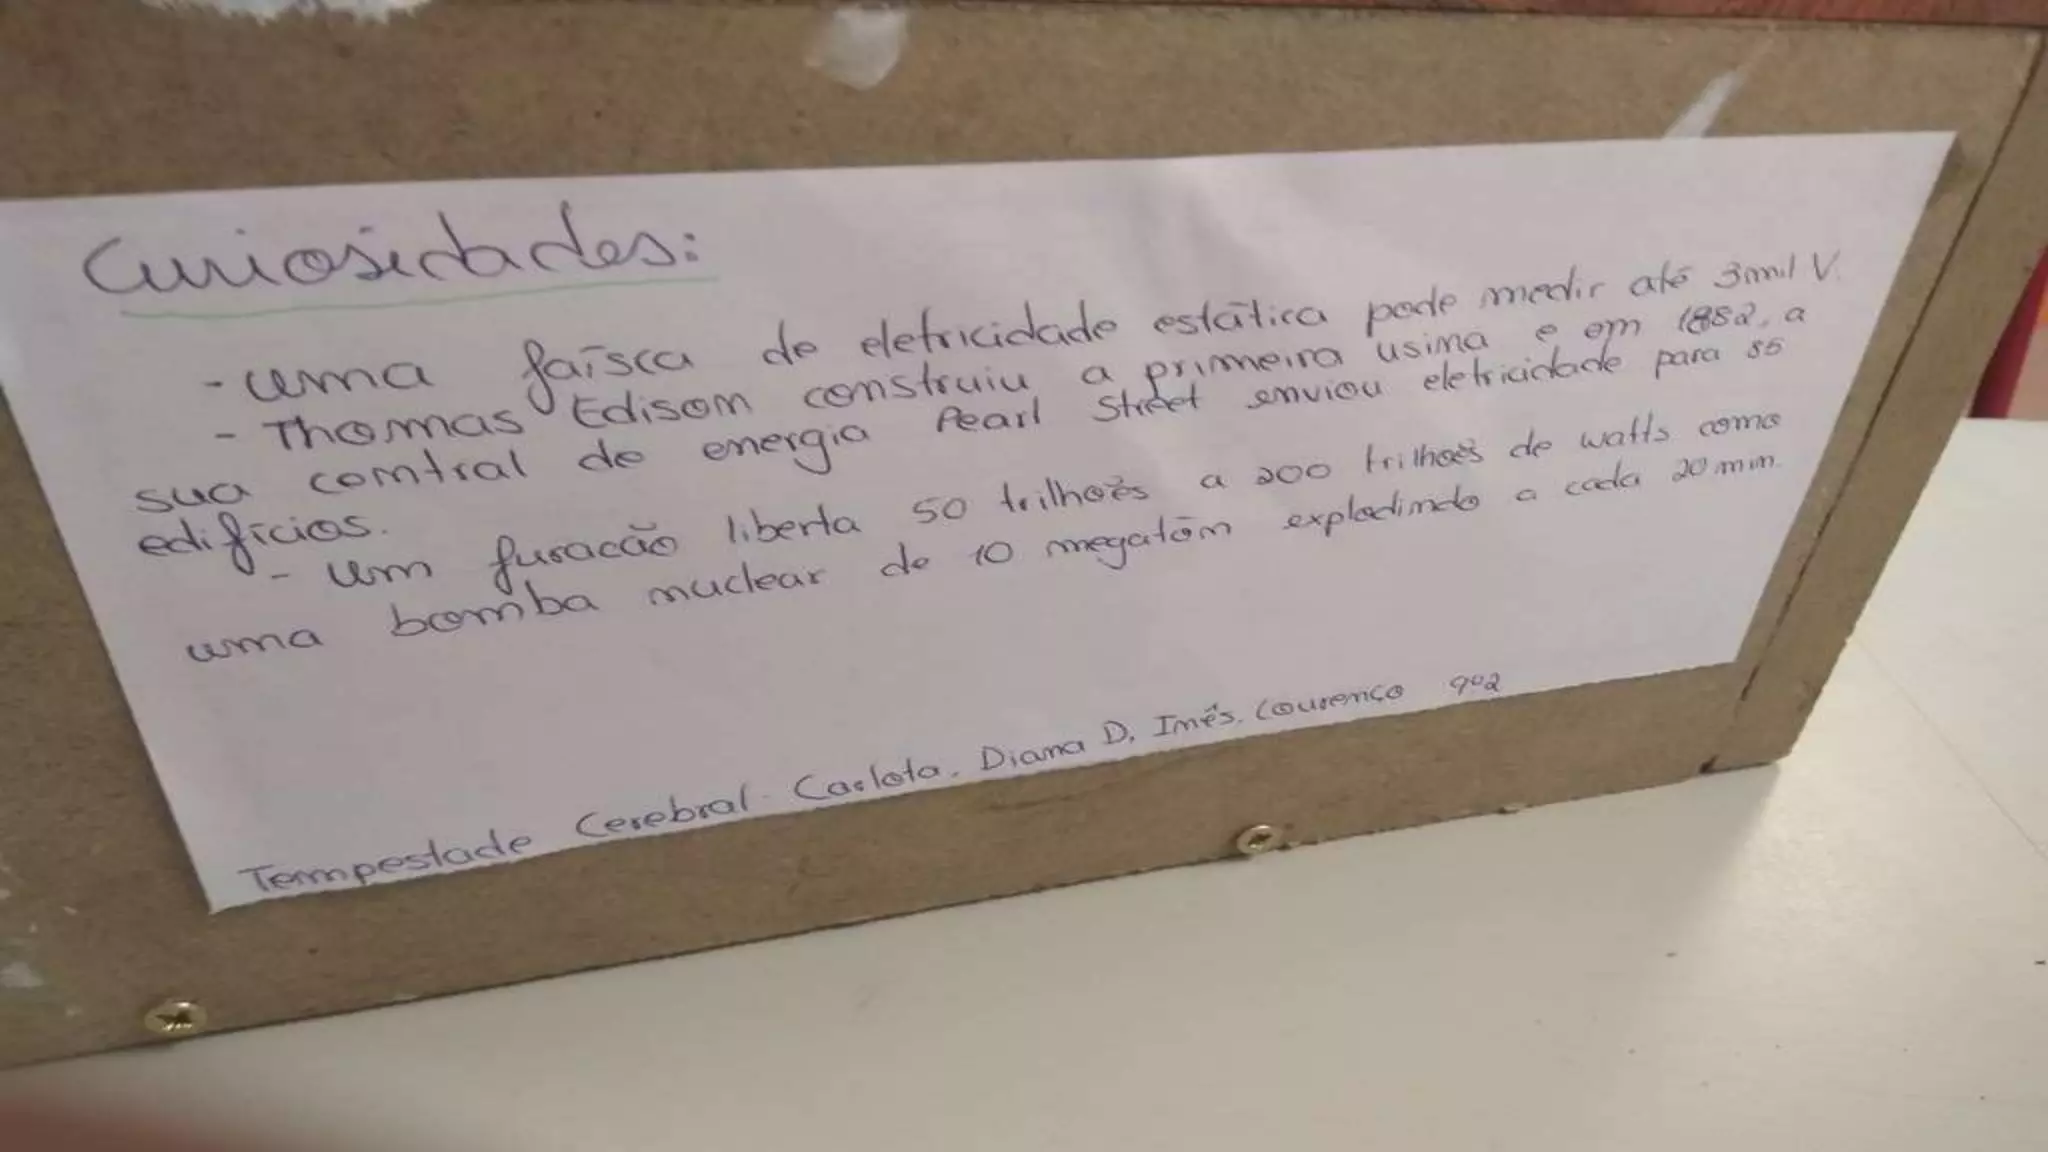 Curiosidades:
- uma faísca de eletricidade estática pode medir até 3mil V.
- Thomas Edison construiu a primeira usina e em 1882, a
sua central de energia Pearl Street enviou eletricidade para 85
edifícios.
- um furacão liberta 50 trilhoẽs a 200 trilhoẽs de watts como
uma bomba nuclear de 10 megatõn explodindo a cada 20 min.
Tempestade Cerebral. Carlota, Diana D, Inês, Lourenço 9º2